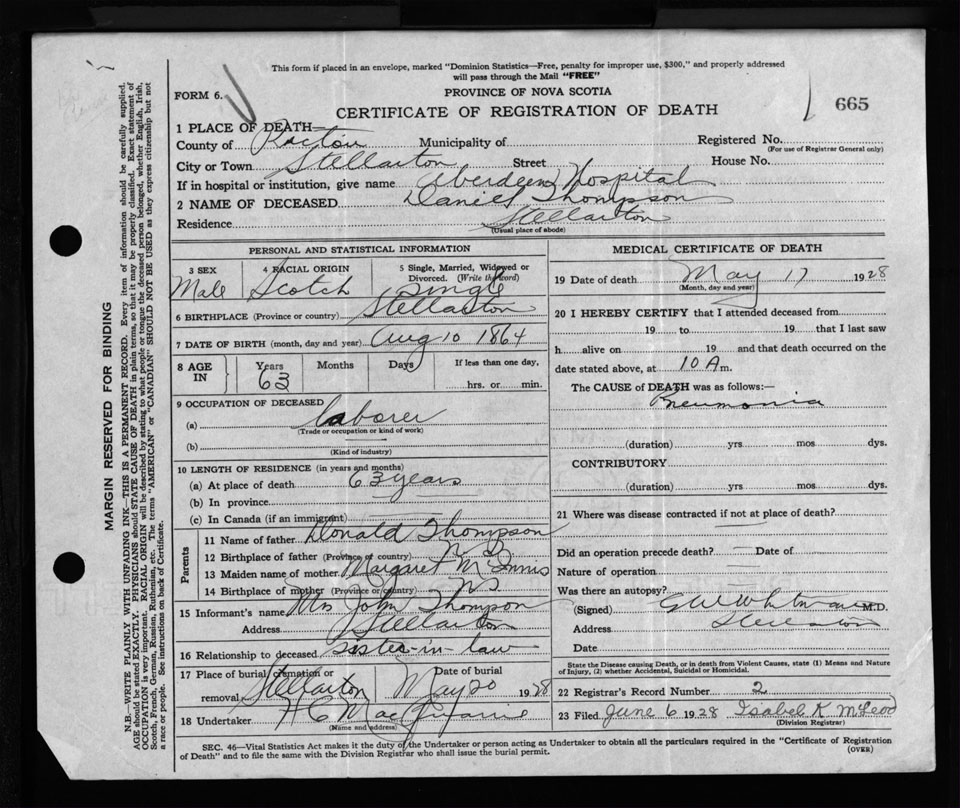 This form if placed in an envelope, marked "Dominion Statistics—Free, penalty for improper use, $300," and properly addressed
will pass through the Mail "FREE"
FORM 6.
PROVINCE OF NOVA SCOTIA
CERTIFICATE OF REGISTRATION OF DEATH
665
1 PLACE OF DEATH—
County of Pictou Municipality of Registered No.
(For use of Registrar General only)
City or Town Stellarton Street House No.
If in hospital or institution, give name Aberdeen Hospital
2 NAME OF DECEASED Daniel Thompson
Residence Stellarton
(Usual place of abode)
MARGIN RESERVED FOR BINDING
N.B.—WRITE PLAINLY WITH UNFADING INK—THIS IS A PERMANENT RECORD. Every item of information should be carefully supplied.
AGE should be stated EXACTLY. PHYSICIANS should STATE CAUSE OF DEATH in plain terms, so that it may be properly classified. Exact statement of
OCCUPATION is very important. RACIAL ORIGIN will be described by stating to what people or tongue the deceased person belonged, whether English, Irish,
Scotch, French, German, Russian, Ruthenian, etc. The terms "AMERICAN" or "CANADIAN" SHOULD NOT BE USED as they express citizenship but not
a race or people. See instructions on back of Certificate.
PERSONAL AND STATISTICAL INFORMATION
3 SEX 4 RACIAL ORIGIN 5 Single, Married, Widowed or
Divorced. (Write the word)
Male Scotch Single
6 BIRTHPLACE (Province or country) Stellarton
7 DATE OF BIRTH (month, day and year) Aug 10 1864
8 AGE IN Years Months Days If less than one day,
63 hrs. or min.
9 OCCUPATION OF DECEASED
(a) laborer
(Trade or occupation or kind of work)
(b)
(Kind of industry)
10 LENGTH OF RESIDENCE (in years and months)
(a) At place of death 63 years
(b) In province
(c) In Canada (if an immigrant)
Parents
11 Name of father Donald Thompson
12 Birthplace of father (Province or country) N S
13 Maiden name of mother Margaret McInnis
14 Birthplace of mother (Province or country) N S
15 Informant's name Mrs John Thompson
Address Stellarton
16 Relationship to deceased sister-in law
17 Place of burial, cremation or Date of burial
removal Stellarton May 20 1928
18 Undertaker H C Mac
(Name and address)
MEDICAL CERTIFICATE OF DEATH
19 Date of death May 17 1928
(Month, day and year)
20 I HEREBY CERTIFY that I attended deceased from
19 to 19 that I last saw
h alive on 19 and that death occurred on the
date stated above, at 10 A m.
The CAUSE of DEATH was as follows:—
Pneumonia
(duration) yrs mos dys.
CONTRIBUTORY
(duration) yrs mos dys.
21 Where was disease contracted if not at place of death?
Did an operation precede death? — Date of —
Nature of operation
Was there an autopsy?
(Signed) Whitman M.D.
Address Stellarton
Date
State the Disease causing Death, or in death from Violent Causes, state (1) Means and Nature
of Injury, (2) whether Accidental, Suicidal or Homicidal.
22 Registrar's Record Number 2
23 Filed June 6 1928 Isabel K McLeod
(Division Registrar)
SEC. 46—Vital Statistics Act makes it the duty of the Undertaker or person acting as Undertaker to obtain all the particulars required in the "Certificate of Registration
of Death" and to file the same with the Division Registrar who shall issue the burial permit.
(OVER)